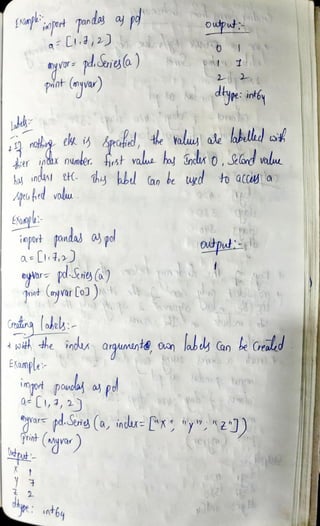 Example:-
import pandas as pd
a = [1,7,2]
myvar = pd.Series(a)
print (myvar)
output:-
0 1
1 7
2 2
dtype: int64
Labels:-
* If nothing else is specified, the values are labelled with
their index number. first value has index 0, Second value
has index 1 etc. This label can be used to access a
specified value.
Example:-
import pandas as pd
a = [1,7,2]
myvar = pd.Series(a)
print (myvar [0])
output:-
1
Creating labels:-
* with the index argument, own labels can be created
Example:-
import pandas as pd
a = [1, 7, 2]
myvar = pd.Series (a, index = ["x", "y", "z"])
print (myvar)
Output:-
x 1
y 7
z 2
dtype: int64